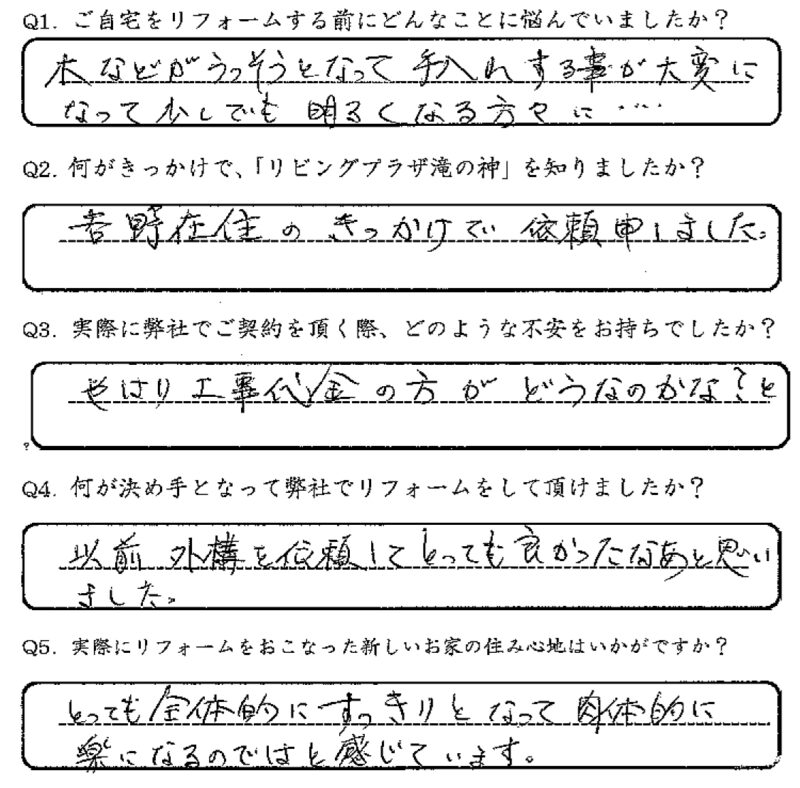 Q1. ご自宅をリフォームする前にどんなことに悩んでいましたか？
木などがうっそうとなって 手入れする事が大変に
なって少しでも 明るくなる方々に‥‥
Q2. 何がきっかけで、「リビングプラザ滝の神」を知りましたか？
吉野在住の きっかけで 依頼申しました。
Q3. 実際に弊社でご契約を頂く際、どのような不安をお持ちでしたか？
やはり工事代金の方が どうなのかな？と
?
Q4. 何が決め手となって弊社でリフォームをして頂けましたか？
以前 外構を依頼してとっても良かったなあと思い
ました。
Q5. 実際にリフォームをおこなった新しいお家の住み心地はいかがですか？
とっても全体的にすっきりとなって 肉体的に
楽になるのではと感じています。